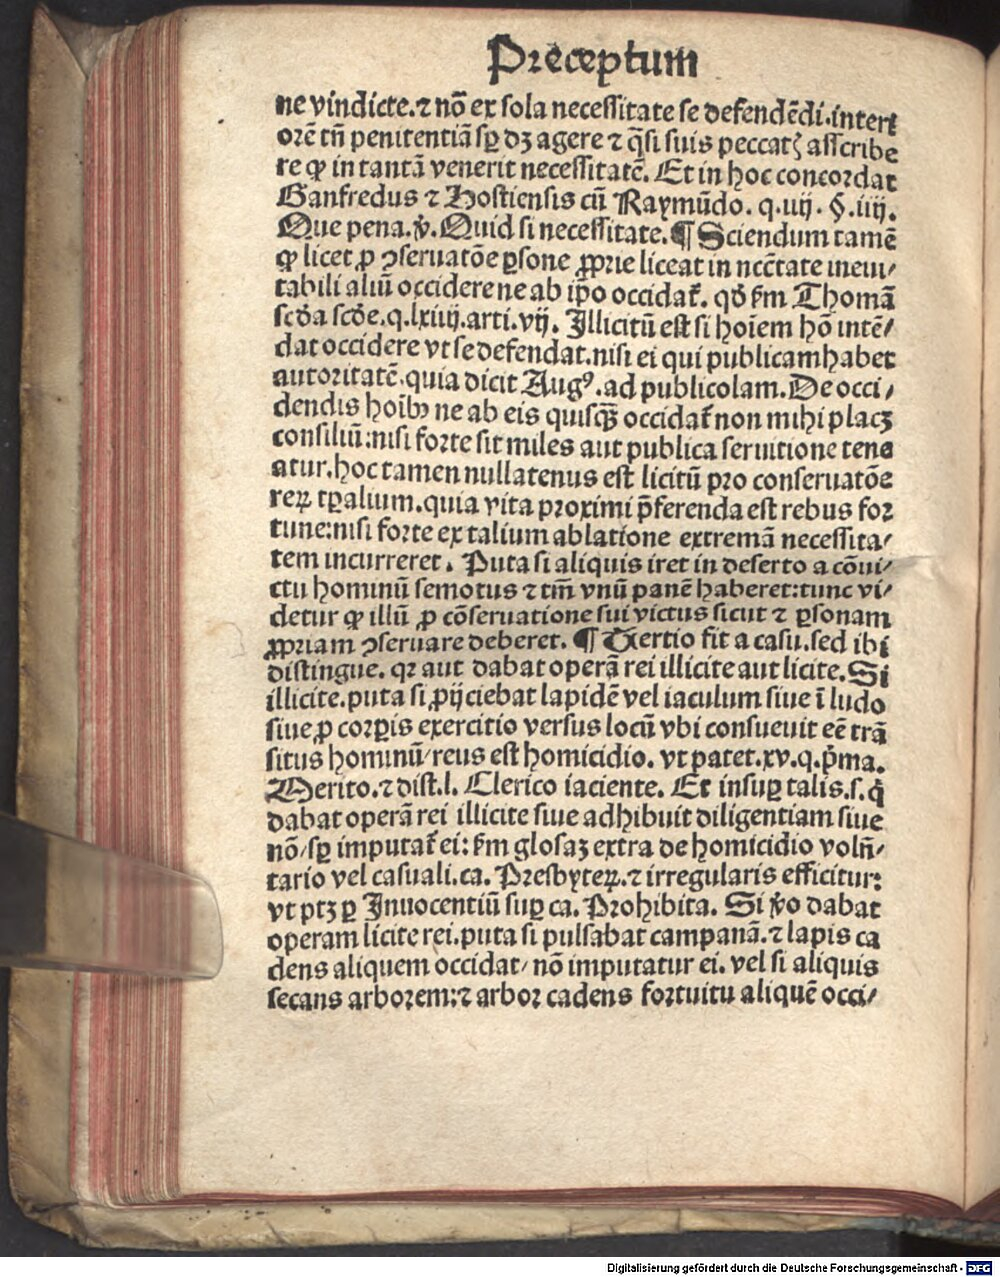 Preceptum
ne vindicte.⁊ nō ex sola necessitate se defendēdi.interi
orē tñ penitentiā sꝑ dꝫ agere ⁊ q̄si suis peccatꝭ asscribe
re ꝙ in tantā venerit necessitatē. Et in hoc concordat
Ganfredus ⁊ Hostiensis cū Raymūdo. q.iiij. §.iiij.
Que pena.v̄. Quid si necessitate.¶ Sciendum tamē
ꝙ licet ꝓ ꝯseruatōe ꝑsone ꝓprie liceat in ncc̄tate ineui⸗
tabili aliū occidere ne ab ip̄o occidat̄. qd̄ s̄m Thomā
scd̄a scd̄e.q.lxiiij.arti.vij. Illicitū est si hoīem hō intē⸗
dat occidere vt se defendat.nisi ei qui publicam habet
autoritatē.quia dicit Augꝰ.ad publicolam.De occi⸗
dendis hoībꝰ ne ab eis quisq̄ꝫ occidat̄ non mihi placꝫ
consiliū:nisi forte sit miles aut publica seruitione tene
atur.hoc tamen nullatenus est licitū pro conseruatōe
reꝝ tꝑalium.quia vita proximi p̄ferenda est rebus for
tune:nisi forte ex talium ablatione extremā necessita⸗
tem incurreret. Puta si aliquis iret in deserto a cōui⸗
ctu hominū semotus ⁊ tm̄ vnū panē haberet:tunc vi⸗
detur ꝙ illū ꝓ cōseruatione sui victus sicut ⁊ ꝑsonam
ꝓpriam ꝯseruare deberet. ¶ Tertio fit a casu.sed ibi
distingue. qꝛ aut dabat operā rei illicite aut licite. Si
illicite.puta si ꝓijciebat lapidē vel iaculum siue ī ludo
siue ꝓ corꝑis exercitio versus locū vbi consueuit eē trā
situs hominū/reus est homicidio. vt patet.xv.q.p̄ma.
Merito.⁊ dist.l. Clerico iaciente. Et insuꝑ talis.s.q̇
dabat operā rei illicite siue adhibuit diligentiam siue
nō/sꝑ imputat̄ ei: s̄m glosaꝫ extra de homicidio volū̄⸗
tario vel casuali.ca. Presbyteꝝ.⁊ irregularis efficitur:
vt ptꝫ ꝑ Innocentiū suꝑ ca. Prohibita. Si v̄o dabat
operam licite rei.puta si pulsabat campanā.⁊ lapis ca
dens aliquem occidat/nō imputatur ei. vel si aliquis
secans arborem:⁊ arbor cadens fortuitu aliquē occi⸗
Digitalisierung gefördert durch die Deutsche Forschungsgemeinschaft - DFG